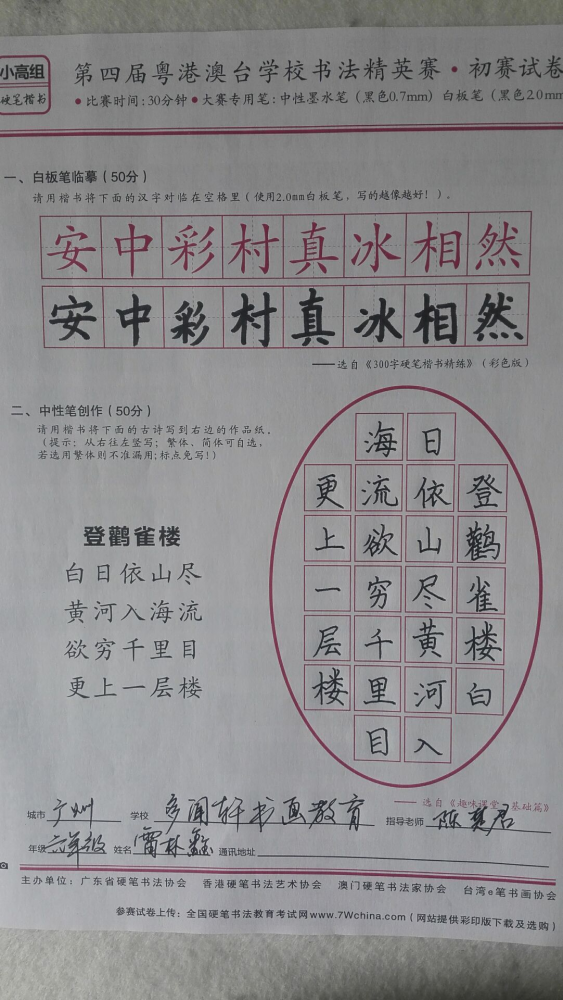 小高组
硬笔楷书
第四届粤港澳台学校书法精英赛·初赛试卷
●比赛时间:30分钟●大赛专用笔:中性墨水笔（黑色0.7mm）白板笔（黑色2.0mm
一、白板笔临摹（50分）
请用楷书将下面的汉字对临在空格里（使用2.0mm白板笔，写的越像越好！）。
安中彩村真冰相然
安中彩村真冰相然
——选自《300字硬笔楷书精练》（彩色版）
二、中性笔创作（50分）
请用楷书将下面的古诗写到右边的作品纸。
（提示：从右往左竖写；繁体、简体可自选，
若选用繁体则不准漏用;标点免写！）
登鹳雀楼
白日依山尽
黄河入海流
欲穷千里目
更上一层楼
登鹳雀楼白
日依山尽黄河入
海流欲穷千里目
更上一层楼
——选自《趣味课堂·基础篇》
城市 广州 学校 多闻轩书画教育 指导老师 陈 君
年级 六年级 姓名 雷林鑫 通讯地址
主办单位：广东省硬笔书法协会 香港硬笔书法艺术协会 澳门硬笔书法家协会 台湾e笔书画协会
参赛试卷上传：全国硬笔书法教育考试网www.7Wchina.com（网站提供彩印版下载及选购）